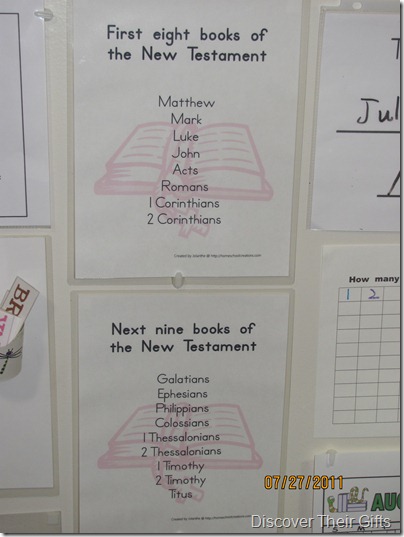 First eight books of
the New Testament
Matthew
Mark
Luke
John
Acts
Romans
1 Corinthians
2 Corinthians
Next nine books of
the New Testament
Galatians
Ephesians
Philippians
Colossians
1 Thessalonians
2 Thessalonians
1 Timothy
2 Timothy
Titus
Jul
How many
1 2
AUG
BR
07/27/2011
Discover Their Gifts